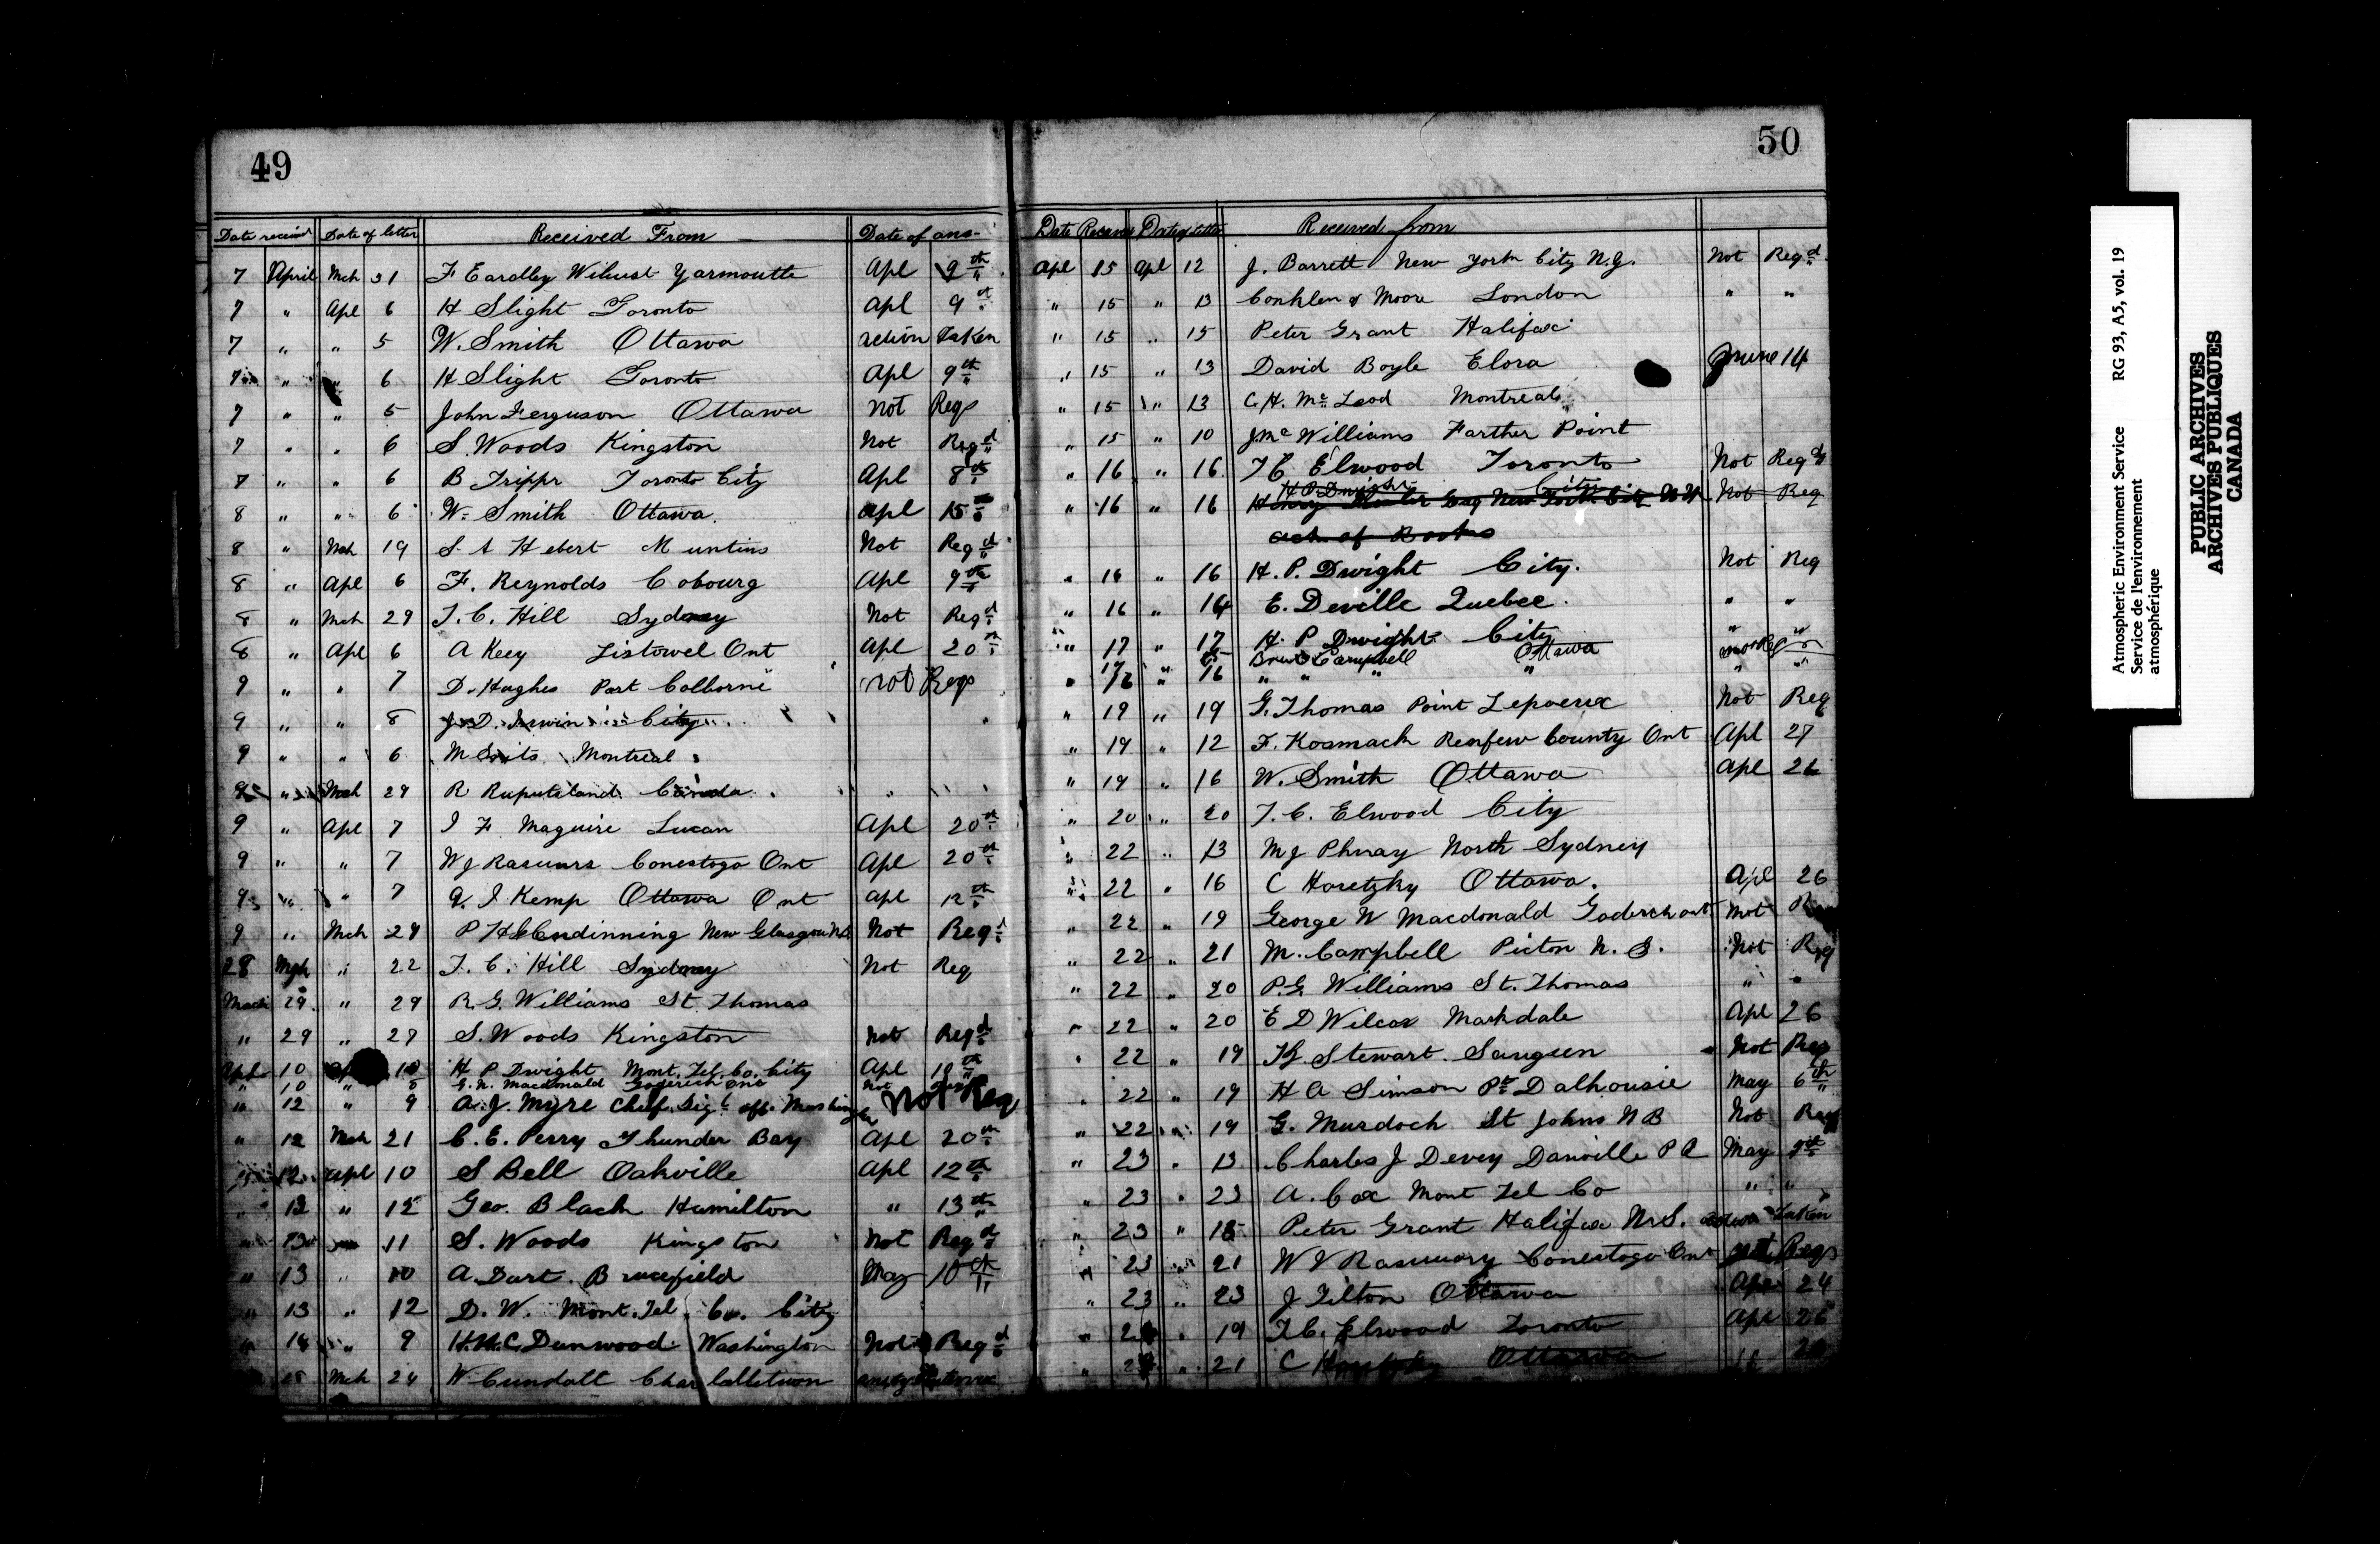 49
Date received Date of letter Received From Date of ans-
7 April Mch 31 F Eardley Yarmouth Apl 9th
7 " Apl 6 H Slight Toronto Apl 9th
7 " " 5 W. Smith Ottawa action Taken
7 " " 6 H Slight Toronto Apl 9th
7 " " 5 John Ferguson Ottawa Not Reqd
7 " " 6 S. Woods Kingston Not Reqd
7 " " 6 B Trippr Toronto City Apl 8th
8 " " 6 W. Smith Ottawa. Apl 15th
8 " Mch 19 S. A Hebert Muntins Not Reqd
8 " Apl 6 F. Reynolds Cobourg Apl 9th
8 " Mch 29 T. C. Hill Sydney Not Reqd
8 " Apl 6 A Keey Listowel Ont Apl 20th
9 " " 7 D. Hughes Port Colborne not Reqd
9 " " 8 J. D. Irwin City
9 " " 6 Montreal
" Mch 29 R Rupertsland Canada
9 " Apl 7 I F Maguire Lucan Apl 20th
9 " " 7 W J Conestogo Ont Apl 20th
9 " " 7 I Kemp Ottawa Ont Apl 12th
9 " Mch 29 P H New Glasgow N.S. Not Reqd
28 Mch " 22 T. C. Hill Sydney Not Req
March 29 " 29 R. G. Williams St. Thomas
" 29 " 27 S. Woods Kingston Not Reqd
Apl 10 10 H P Dwight Mont. Tel. Co. City Apl 10th
" 10 " 8 G. N. Macdonald Goderich Ont Not
" 12 " 9 A. J. Myre Chief Sigl off. Washington Not Req
" 12 Mch 21 C. E. Perry Thunder Bay Apl 20th
" 12 Apl 10 S Bell Oakville Apl 12th
" 13 " 12 Geo. Black Hamilton " 13th
" 13 11 S. Woods Kingston Not Reqd
" 13 " 10 A. Dart. Brucefield May 10th
" 13 " 12 D. W. Mont. Tel Co. City
" 14 " 9 H. H. C. Dunwood Washington Not Reqd
Mch 24 W Cundall Charlottetown
50
Date Received Date of letter Received from
Apl 15 Apl 12 J. Barrett New York City N.Y. Not Reqd
" 15 " 13 Conklen & Moore London " "
" 15 " 15 Peter Grant Halifax
" 15 " 13 David Boyle Elora June 14
" 15 " 13 C. H. McLeod Montreal
" 15 " 10 J McWilliams Farther Point
" 16 " 16 T C Elwood Toronto Not Reqd
H P Dwight City
" 16 " 16 Henry Esq New York City N.Y. Not Req
ack of Books
" 16 " 16 H. P. Dwight City. Not Req
" 16 " 14 E. Deville Quebec. " "
" 17 " 17 H. P Dwight City " "
Campbell Ottawa
" " 16 " " " " " "
" 19 " 19 G. Thomas Point Not Req
" 19 " 12 F. Kosmack Renfew County Ont Apl 27
" 19 " 16 W. Smith Ottawa Apl 26
" 20 " 20 T. C. Elwood City
" 22 " 13 M J Phnay North Sydney
" 22 " 16 C Horetzky Ottawa. Apl 26
" 22 " 19 George W Macdonald Goderich ont. Not
" 22 " 21 M. Campbell Picton N. S. Not Req
" 22 " 20 P. G. Williams St. Thomas " "
" 22 " 20 E D Wilcox Markdale Apl 26
" 22 " 19 Stewart Saugeen Not Req
" 22 " 19 H A Simson Pt Dalhousie May 6th
" 22 " 19 G. Murdoch St Johns N B Not Req
" 23 " 13 Charles J Devey Danville P Q May
" 23 " 23 A. Cox Mont Tel Co " "
" 23 " 18 Peter Grant Halifax N. S. Action Taken
" 23 " 21 W J Conestogo Ont
" 23 " 23 J Tilton Ottawa Apl 24
" " 19 T. C. Elwood Toronto Apl 26
" " 21 C Horetzky Ottawa
Atmospheric Environment Service RG 93, A5, vol. 19
Service de l'environnement
atmosphérique
PUBLIC ARCHIVES
ARCHIVES PUBLIQUES
CANADA